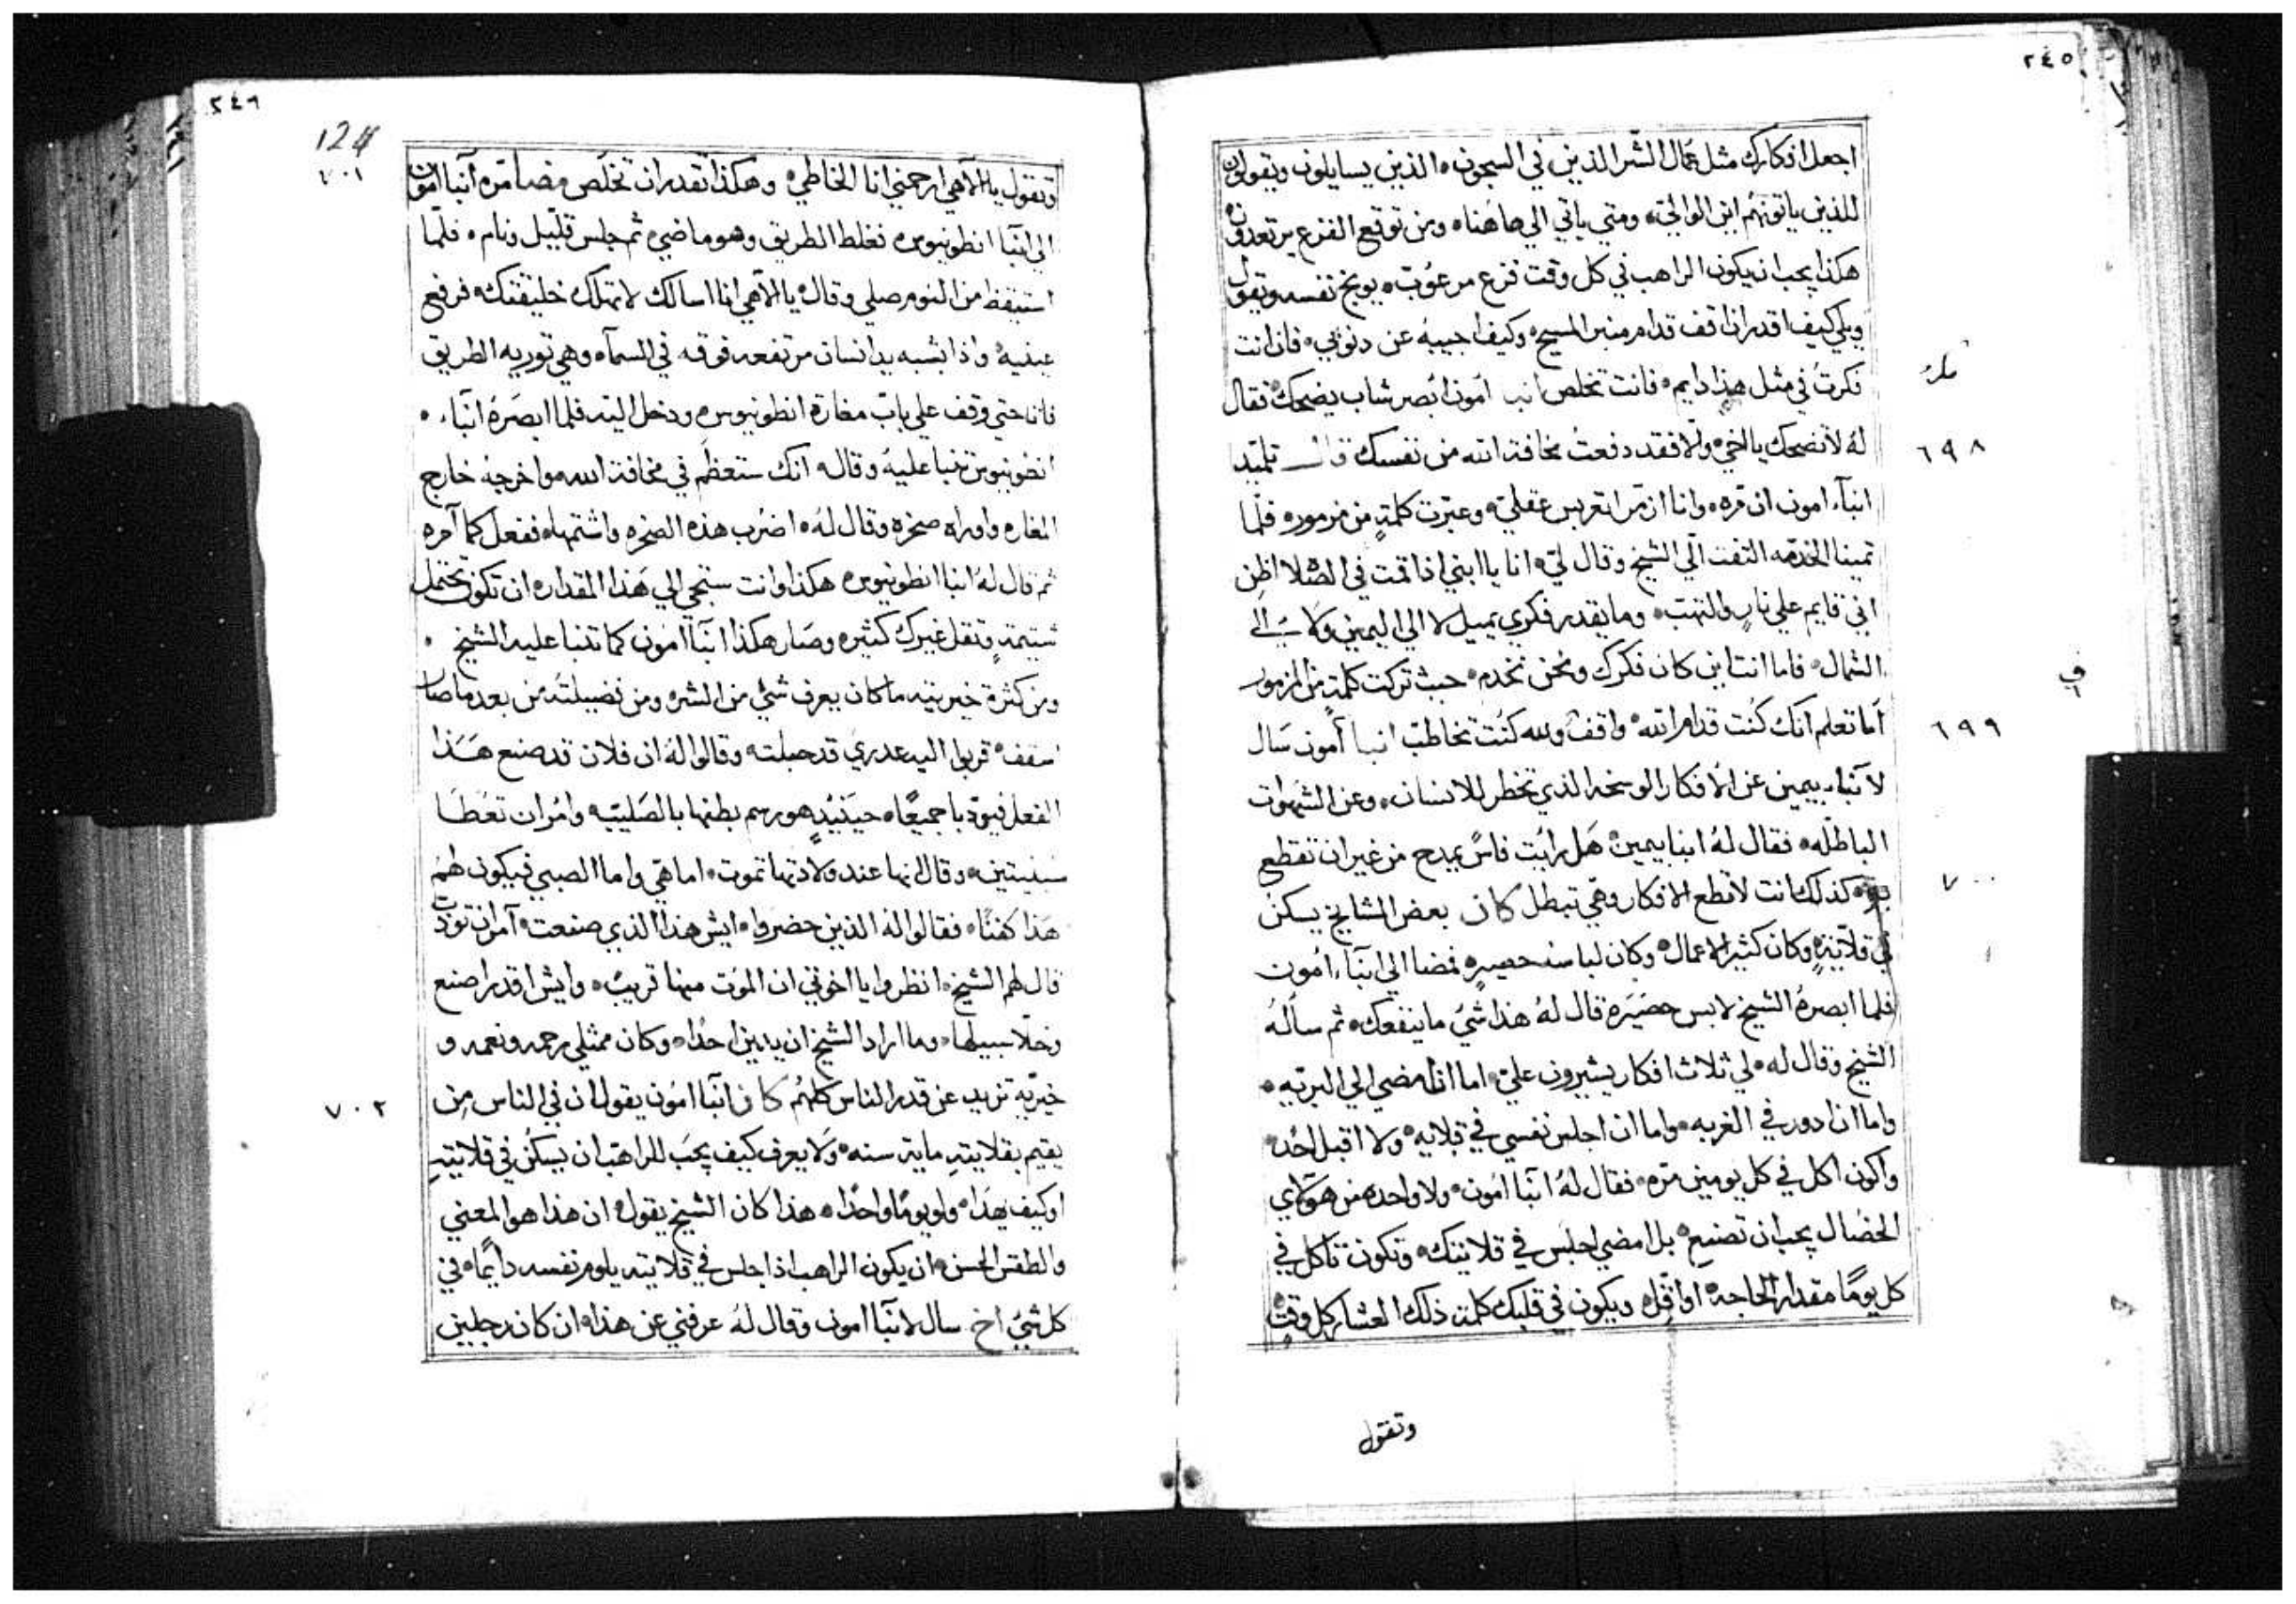 ٢٤٥
اجعل افكارك مثل عمال الشر الذين في السجون الذين يسايلون ويقولون
للذين ياتونهم اين الوالي ومتي ياتي الي هاهنا ومن توقع الفزع يرتعدون
هكذا يجب ان يكون الراهب في كل وقت فزع مرعوب يوبخ نفسه ويقول
ويلي كيف اقدر ان اقف قدام منبر المسيح وكيف اجيبه عن دنوبي فان انت
فكرت في مثل هذا دايم فانت تخلص انبا امون ابصر شاب يضحك فقال
له لا تضحك يا اخي والا فقد دفعت مخافة الله من نفسك قال تلميد
٦٩٨
انبآء امون ان مره وانا ازمر اتعربس عقلي وعبرت كلمة من مزمور فلما
تمينا الخدمه التفت الي الشيخ وقال لي انا يا ابني اذا قمت في الصلا اظن
اني قايم علي نار والتهب وما يقدر فكري يميل لا الي اليمين ولا الي
الشمال فاما انت اين كان فكرك ونحن نخدم حيث تركت كلمة من المزمور
اما تعلم انك كنت قدام الله واقف ولله كنت تخاطب انبا امون سال
٦٩٩
لانبا بيمين عن الافكار الوسخه الذي تخطر للانسان وعن الشهوات
الباطله فقال له انبا بيمين هل رايت فاس يمدح من غير ان تقطع
به كذلك انت لا تقطع الافكار وهي تبطل كان بعض المشايخ يسكن
٧٠٠
في قلايته وكان كثير الاعمال وكان لباسه حصيره فمضا الي انبآء امون
فلما ابصره الشيخ لابس حصيره قال له هذا شي ما ينفعك ثم ساله
الشيخ وقال له لي ثلاث افكار يشيرون علي اما ان امضي الي البريه
واما ان ادور في الغربه واما ان اجلس نفسي في قلايه ولا اقبل احد
واكون اكل في كل يومين مره فقال له انبا امون ولا واحده من هولاي
الخصال يجب ان تصنع بل امضي اجلس في قلايتك وتكون تاكل في
كل يومًا مقدار الحاجه او اقل ويكون في قلبك كلمة ذلك العشار كل وقت
وتقول
٢٤٦
124
٧٠١
وتقول يا الاهي ارحمني انا الخاطي وهكذا تقدر ان تخلص مضا مره انبا امون
الي انبا انطونيوس فغلط الطريق وهو ماضي ثم جلس قليل ونام فلما
استيقظ من النوم صلي وقال يا الاهي انا اسالك لا تهلك خليقتك فرفع
عينيه واذا بشبه يد انسان مرتفعه فوقه في السمآء وهي توريه الطريق
فاتا حتي وقف علي باب مغارة انطونيوس ودخل اليه فلما ابصره انبآء
انطونيوس تنبا عليه وقال له انك ستعظم في مخافة الله واخرجه خارج
المغاره واوراه صخره وقال له اضرب هذه الصخره واشتمها ففعل كما امره
ثم قال له انبا انطونيوس هكذا وانت ستجي الي هذا المقدار ان تكون تحتمل
شتيمة وتقل غيرك كثير وصار هكذا انبا امون كما تنبا عليه الشيخ
ومن كثرة خيريته ما كان يعرف شي من الشر ومن فضيلته من بعد ما صار
اسقف قربوا اليه عدري قد حبلت وقالوا له ان فلان قد صنع هذا
الفعل فيودبا جميعًا حينيد هو رسم بطنها بالصليب وامر ان تعطا
سبنيتين وقال انها عند ولادتها تموت اما هي واما الصبي فيكون لهم
هذا كفنًا فقالوا له الذين حضروا ايش هذا الذي صنعت امر ان تودب
قال لهم الشيخ انظروا يا اخوتي ان الموت منها قريب وايش اقدر اصنع
وخلا سبيلها وما اراد الشيخ ان يدين احدًا وكان ممتلي رحمه ونعمه و
خيريه تزيد عن قدر الناس كلهم كان انبا امون يقول ان في الناس من
٧٠٢
يقيم بقلايته ماية سنه ولا يعرف كيف يجب للراهب ان يسكن في قلايته
او كيف يهدا ولو يومًا واحدًا هذا كان الشيخ يقول ان هذا هو المعني
والطقس الحسن ان يكون الراهب اذا جلس في قلايته يلوم نفسه دايمًا في
كل شي اخ سال لانبا امون وقال له عرفني عن هذا ان كان رجلين